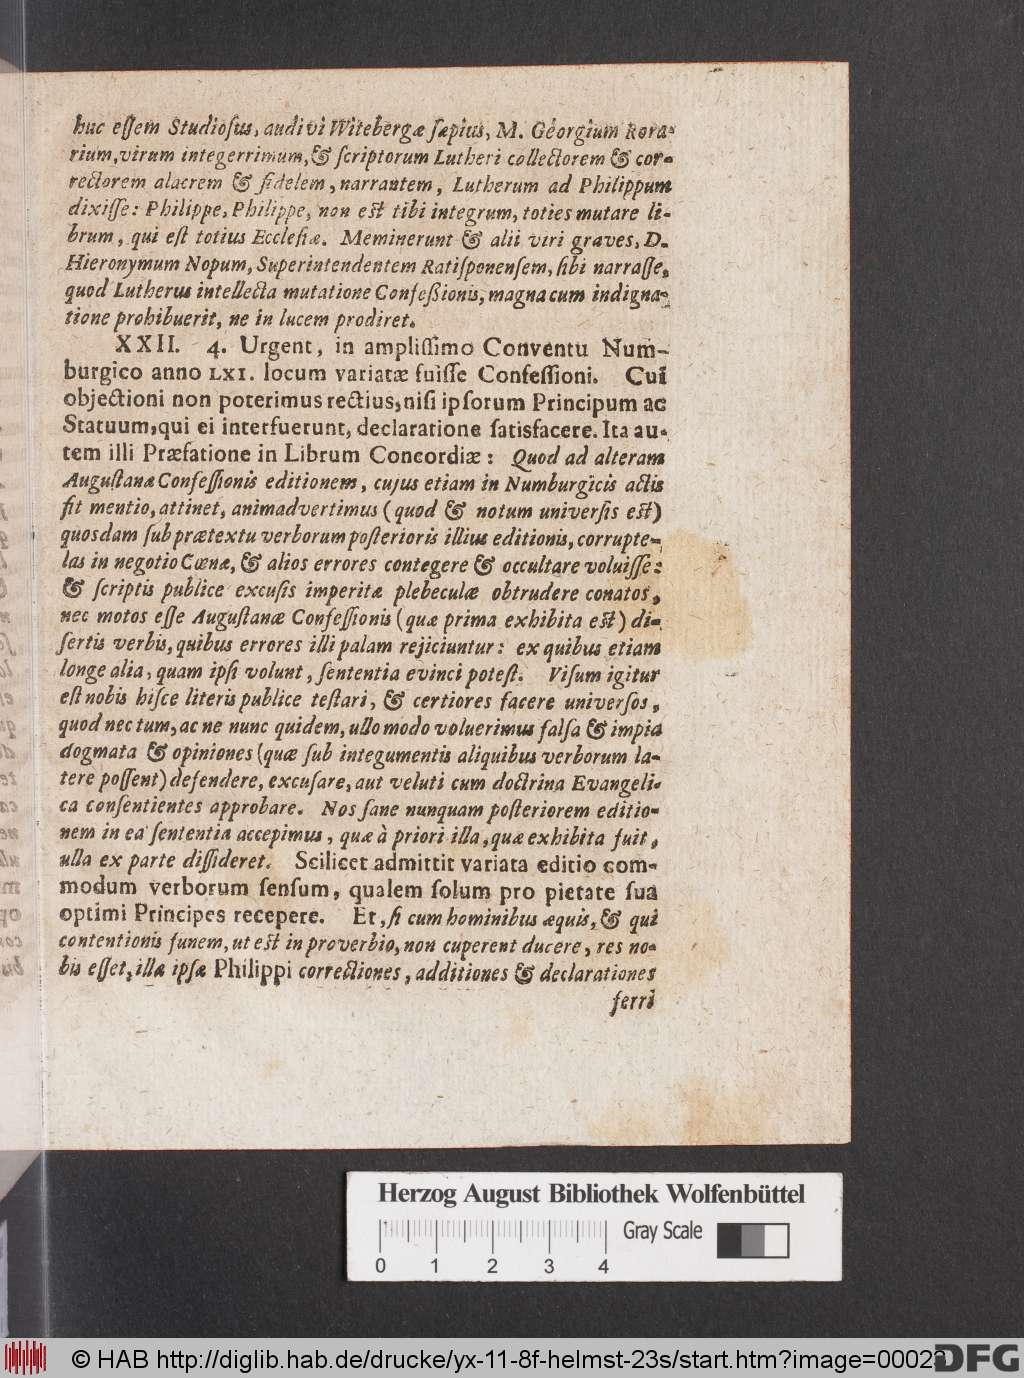 huc eſſem Studioſus, audivi Witebergæ ſæpius, M. Georgium Rora-
rium, virum integerrimum, & ſcriptorum Lutheri collectorem & cor-
rectorem alacrem & fidelem, narrantem, Lutherum ad Philippum
dixiſſe: Philippe, Philippe, non eſt tibi integrum, toties mutare li-
brum, qui eſt totius Eccleſiæ. Meminerunt & alii viri graves, D.
Hieronymum Nopum, Superintendentem Ratiſponenſem, ſibi narraſſe,
quod Lutherus intellecta mutatione Confeſsionis, magna cum indigna-
tione prohibuerit, ne in lucem prodiret.
XXII. 4. Urgent, in ampliſſimo Conventu Num-
burgico anno LXI. locum variatæ fuiſſe Confeſſioni. Cui
objectioni non poterimus rectius, niſi ipſorum Principum ac
Statuum, qui ei interfuerunt, declaratione ſatisfacere. Ita au-
tem illi Præfatione in Librum Concordiæ: Quod ad alteram
Auguſtanæ Confeſſionis editionem, cujus etiam in Numburgicis actis
fit mentio, attinet, animadvertimus (quod & notum univerſis eſt)
quosdam ſub prætextu verborum poſterioris illius editionis, corrupte-
las in negotio Cœnæ, & alios errores contegere & occultare voluiſſe:
& ſcriptis publice excuſis imperitæ plebeculæ obtrudere conatos,
nec motos eſſe Auguſtanæ Confeſſionis (quæ prima exhibita eſt) di-
ſertis verbis, quibus errores illi palam rejiciuntur: ex quibus etiam
longe alia, quam ipſi volunt, ſententia evinci poteſt. Viſum igitur
eſt nobis hiſce literis publice teſtari, & certiores facere univerſos,
quod nec tum, ac ne nunc quidem, ullo modo voluerimus falſa & impia
dogmata & opiniones (quæ ſub integumentis aliquibus verborum la-
tere poſſent) defendere, excuſare, aut veluti cum doctrina Evangeli-
ca conſentientes approbare. Nos ſane nunquam poſteriorem editio-
nem in ea ſententia accepimus, quæ à priori illa, quæ exhibita fuit,
ulla ex parte diſſideret. Scilicet admittit variata editio com-
modum verborum ſenſum, qualem ſolum pro pietate ſua
optimi Principes recepere. Et, ſi cum hominibus æquis, & qui
contentionis funem, ut eſt in proverbio, non cuperent ducere, res no-
bis eſſet, illæ ipſæ Philippi correctiones, additiones & declarationes
ferri
Herzog August Bibliothek Wolfenbüttel
Gray Scale
0 1 2 3 4
© HAB http://diglib.hab.de/drucke/yx-11-8f-helmst-23s/start.htm?image=00023
DFG